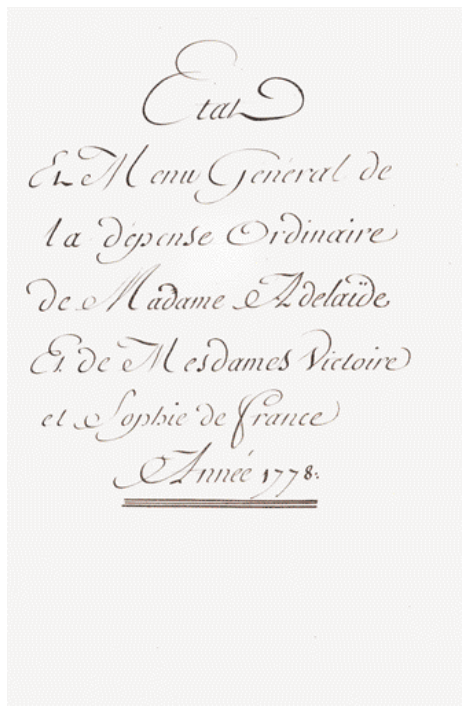 Etat
Et Menu Général de
la dépense Ordinaire
de Madame Adelaïde
Et de Mesdames Victoire
et Sophie de france
Année 1778.